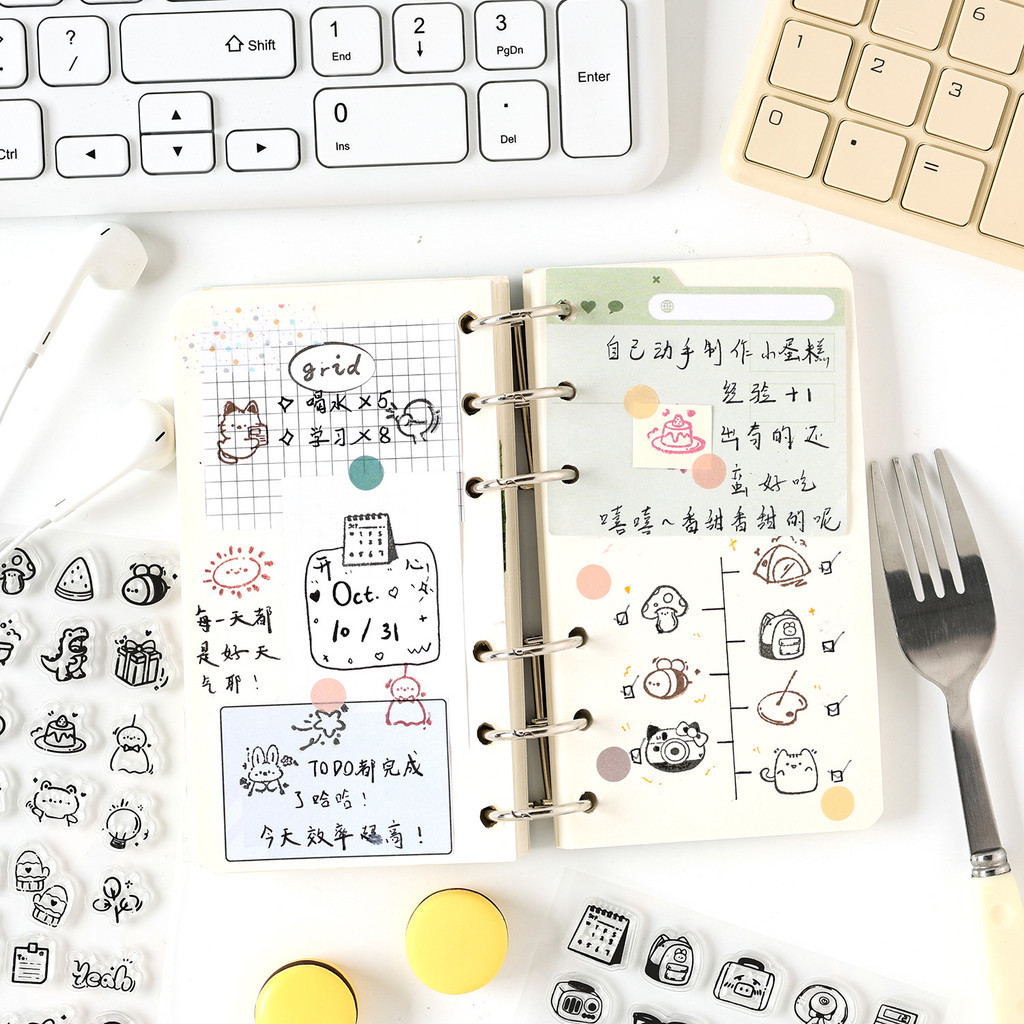 ?
/
Shift
1
End
2
3
PgDn
Enter
0
Ins
.
Del
Ctrl
1
2
3
6
0
.
=
grid
喝水×5
学习×8
开心
Oct.
10/31
每一天都
是好天
气耶！
TODO都完成
了哈哈！
今天效率超高！
自己动手制作小蛋糕
经验+1
出奇的还
蛮好吃
嘻嘻~香甜香甜的呢
Yeah